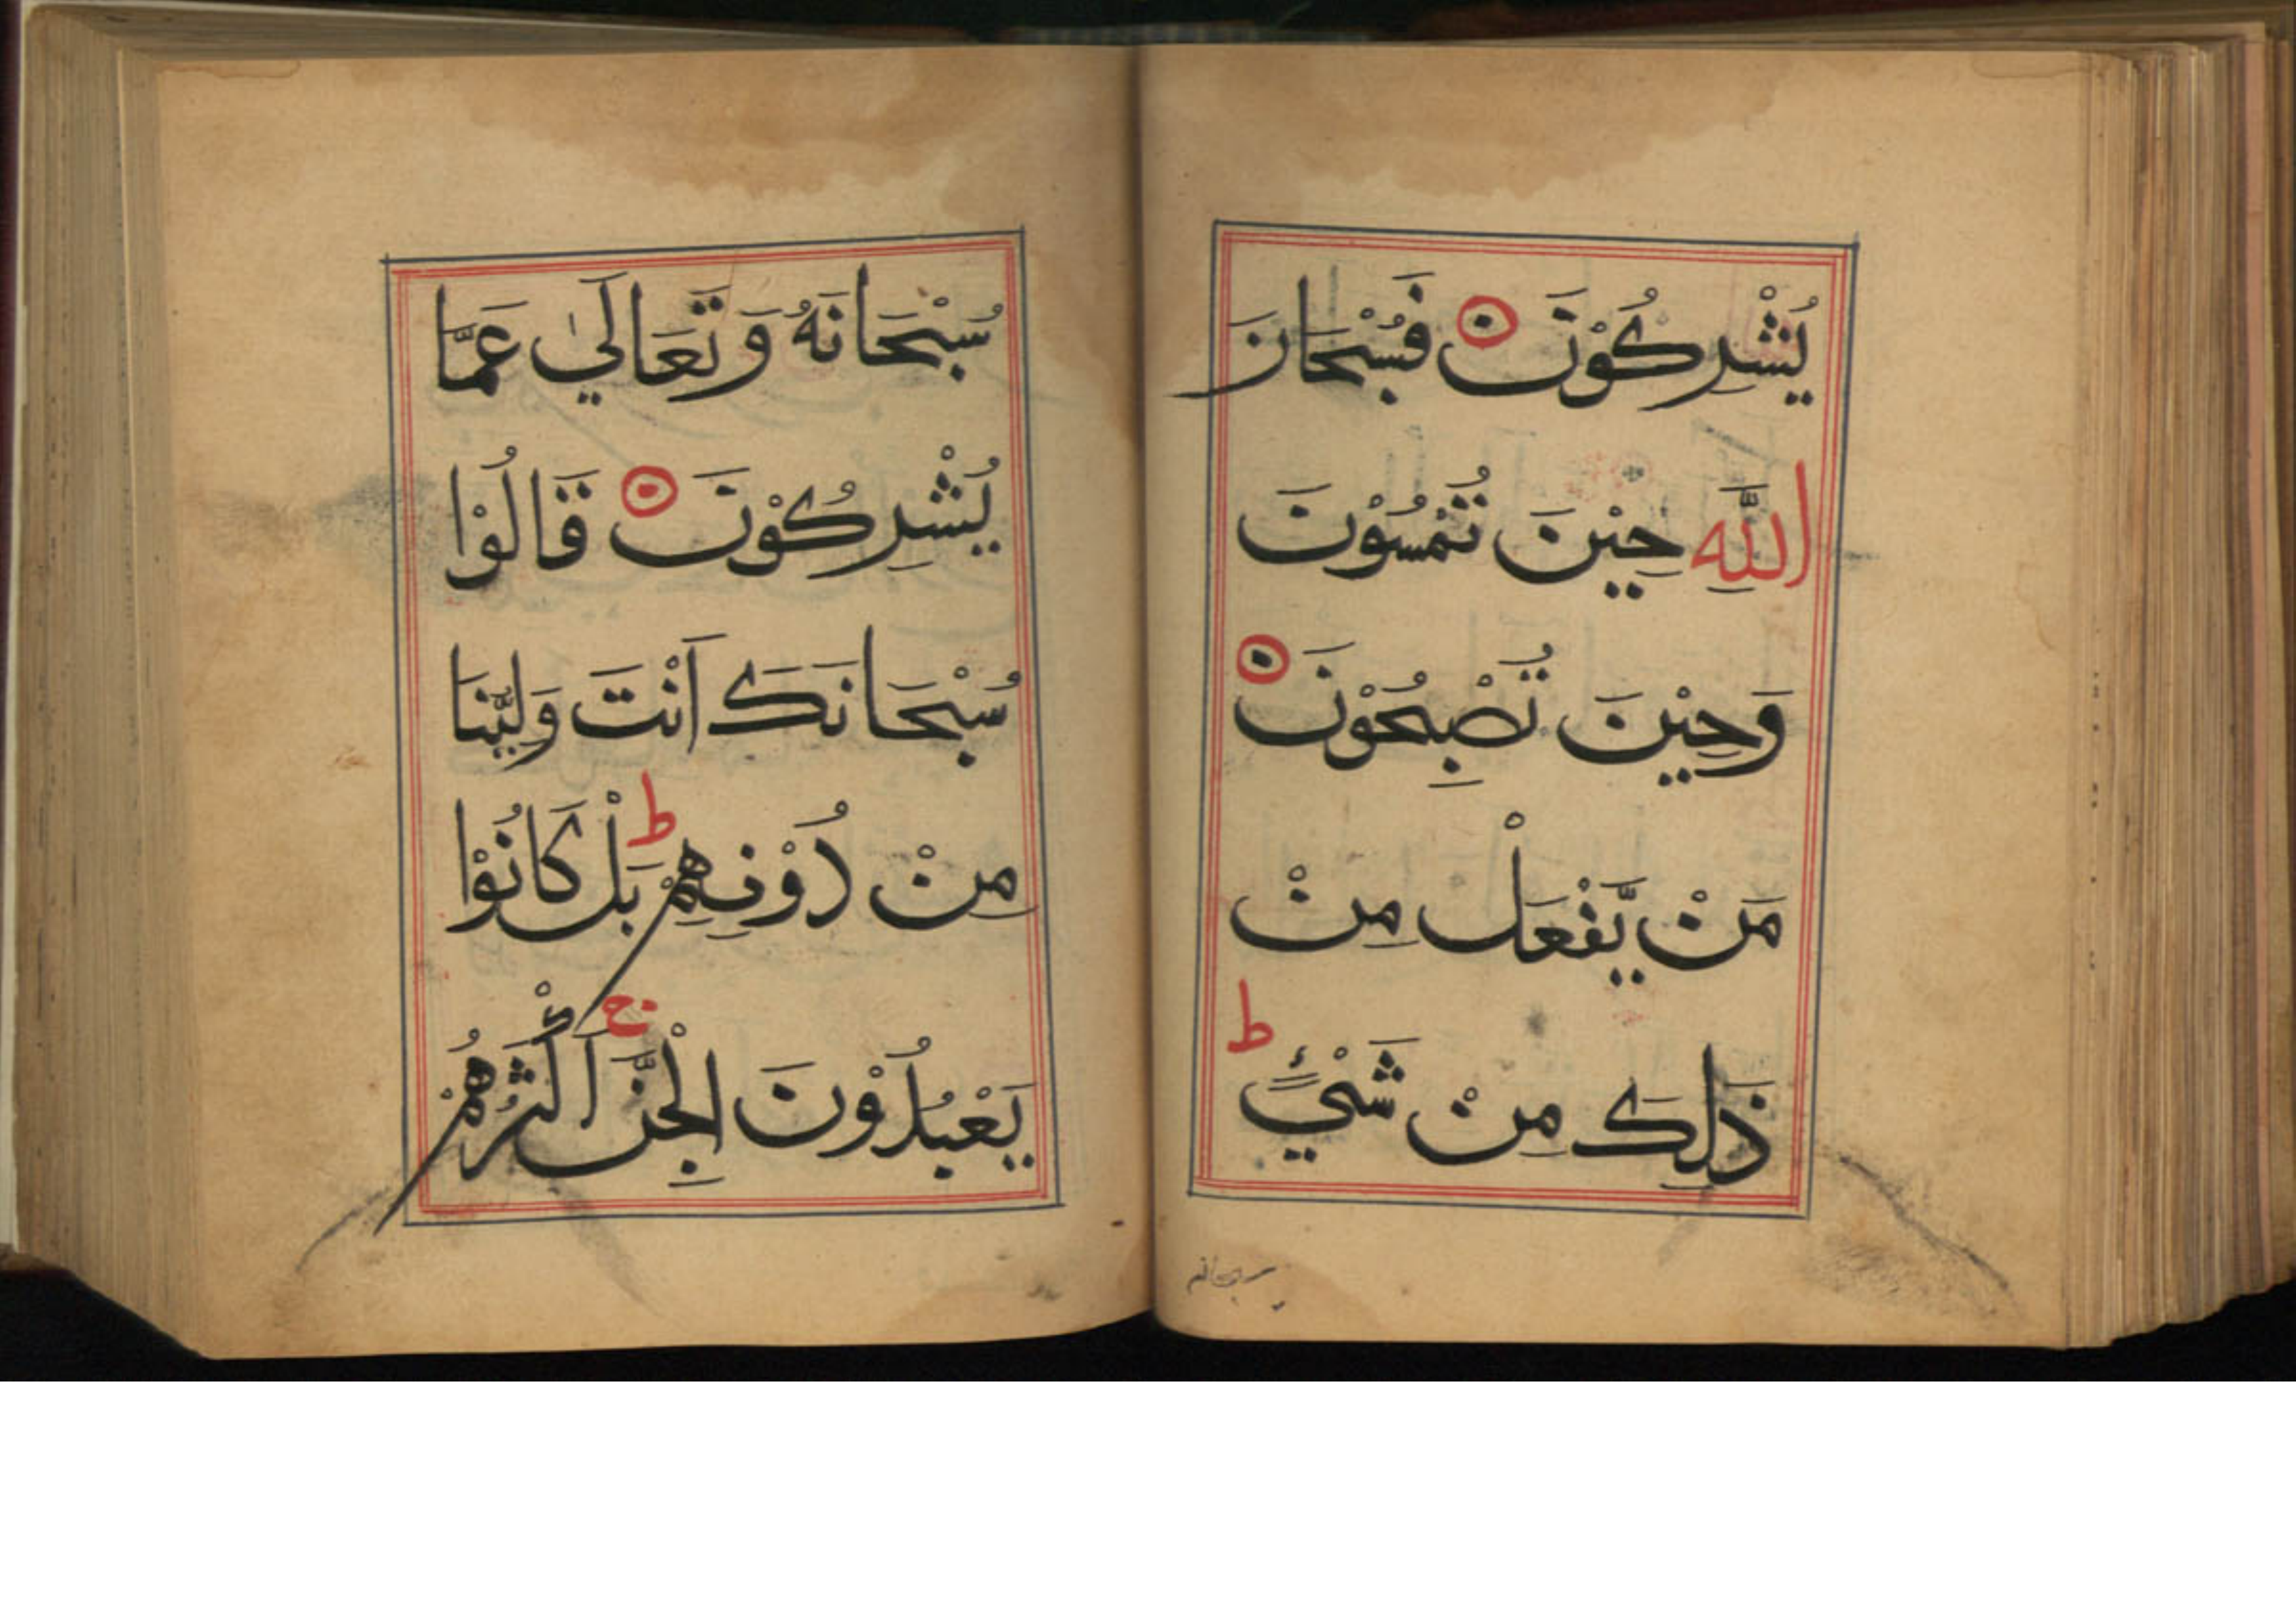 يُشْرِكُوْنَ فَسُبْحَانَ
اللّٰهِ حِيْنَ تُمْسُوْنَ
وَحِيْنَ تُصْبِحُوْنَ
مَنْ يَّفْعَلُ مِنْ
ذَلِكَ مِنْ شَيْءٍ ط
سبحانه
سُبْحَانَهُ وَتَعَالَىٰ عَمَّا
يُشْرِكُوْنَ قَالُوْا
سُبْحَانَكَ اَنْتَ وَلِيُّنَا
مِنْ دُوْنِهِمْ ط بَلْ كَانُوْا
يَعْبُدُوْنَ الْجِنَّ ج اَكْثَرُهُمْ